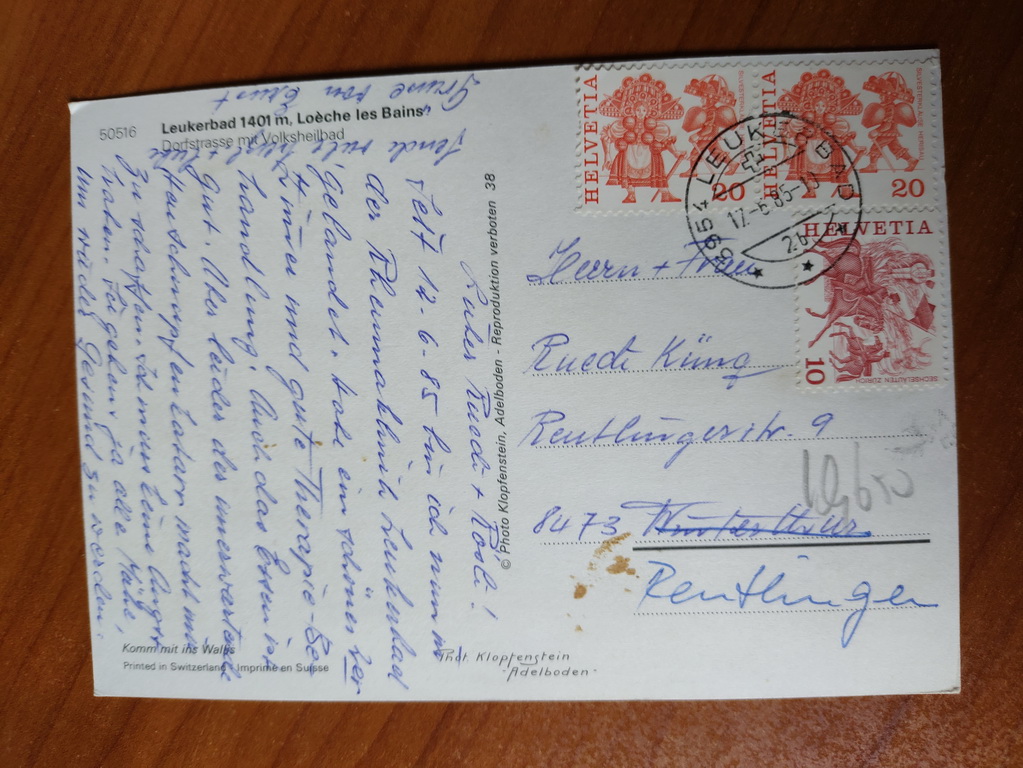 50516
Leukerbad 1401 m, Loèche les Bains
Dorfstrasse mit Volksheilbad
Lieber Ruedi + Rösli!
Seit 12-6-85 bin ich nun in
der Rheumaklinik Leukerbad
gelandet. Habe ein schönes
Zimer und gute Therapie-Be
handlung. Auch das Essen ist
gut. Aber leider der unerwartete
Harnschnupfen
zu schaffen. Ich muss keine Angst
haben. Sie geben ja alle Mühe,
um wieder Gesund zu werden.
von Ernst
Komm mit ins Wallis
Printed in Switzerland - Imprimé en Suisse
© Photo Klopfenstein, Adelboden - Reproduktion verboten 38
Phot. Klopfenstein
-Adelboden-
HELVETIA
20
HELVETIA
20
HELVETIA
10
SECHSELÄUTEN ZÜRICH
3954 LEUKERBAD
17.-6.85-19
2b
Herrn + Frau
Ruedi Küng
Reutlingerstr. 9
8473 Winterthur
Reutlingen